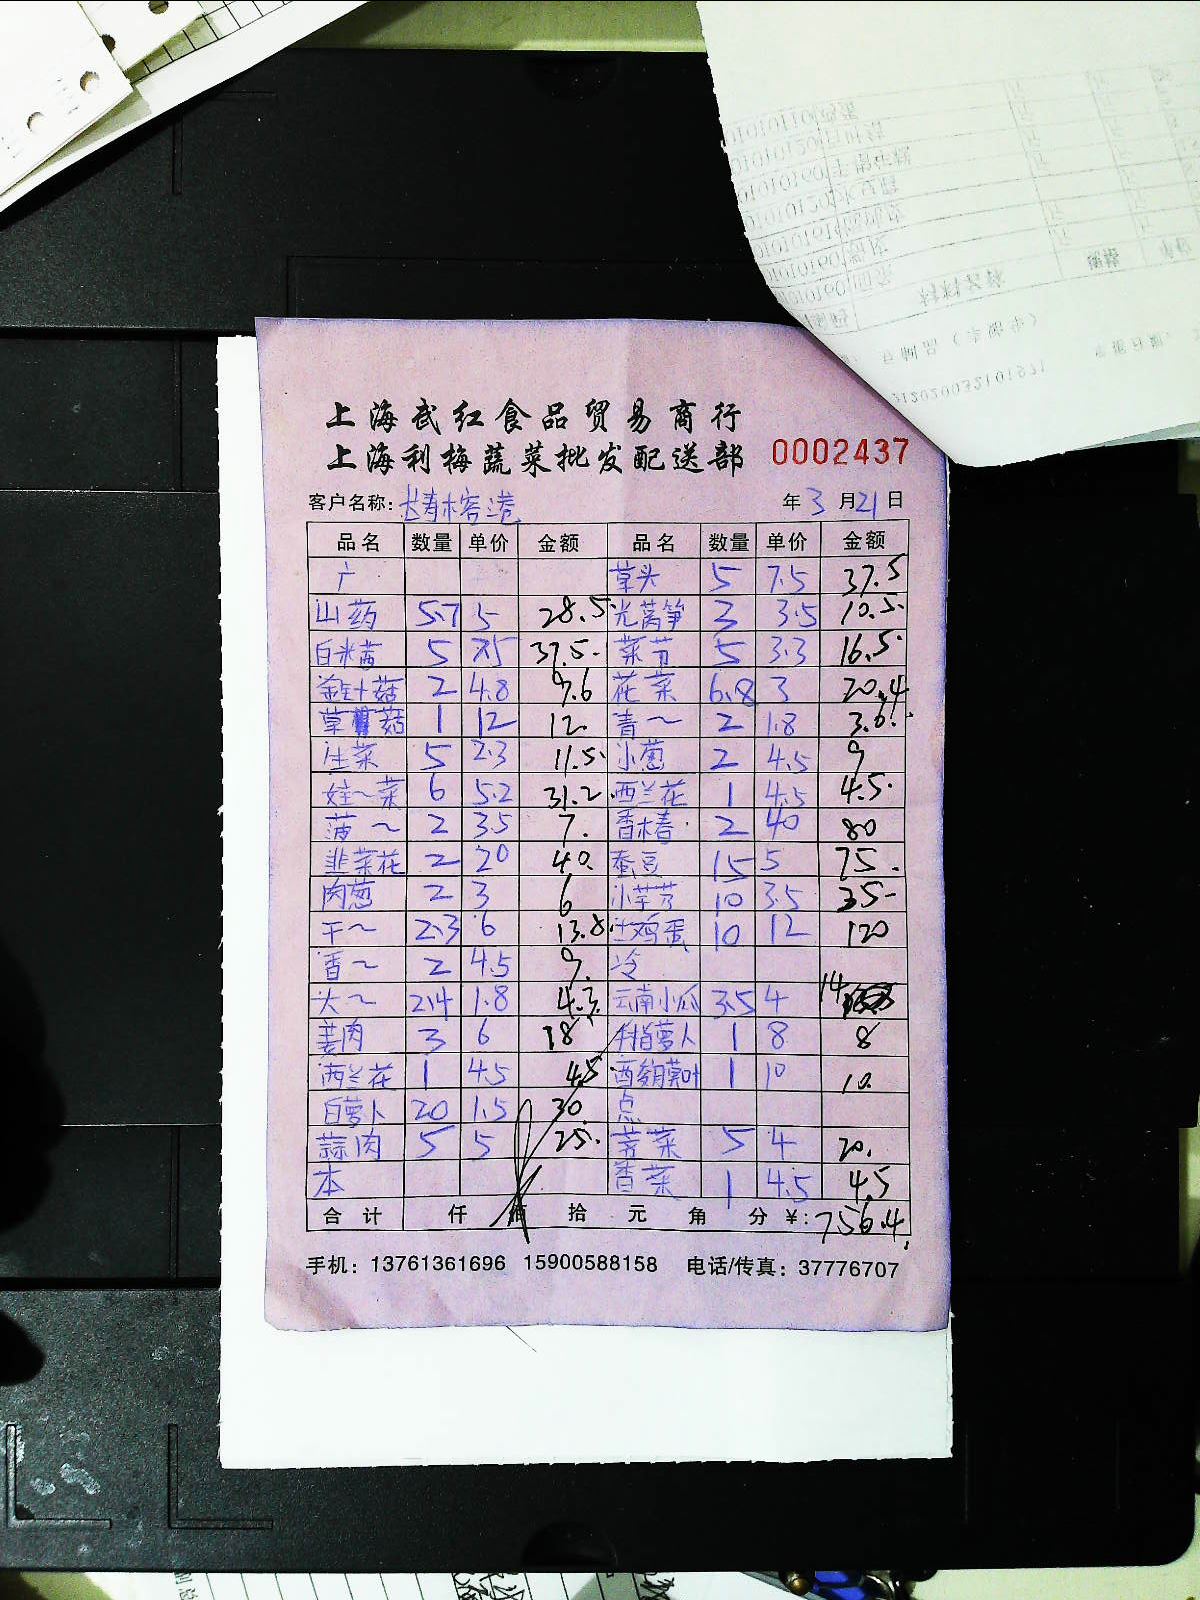 上海武红食品贸易商行
上海利梅蔬菜批发配送部 0002437
客户名称: 年 3 月 21 日
品名 数量 单价 金额 品名 数量 单价 金额
广 草头 5 7.5 37.5
山药 5.7 5 28.5 光莴笋 3 3.5 10.5
白米茜 5 7.5 37.5 菜节 5 3.3 16.5
金针菇 2 4.8 9.6 花菜 6.8 3 20.4
草菇 1 12 12 青～ 2 1.8 3.6
生菜 5 2.3 11.5 小葱 2 4.5 9
娃～菜 6 5.2 31.2 西兰花 1 4.5 4.5
菠～ 2 3.5 7 香椿 2 40 80
韭菜花 2 20 40 蚕豆 15 5 75
肉葱 2 3 6 小芋艿 10 3.5 35
干～ 2.3 6 13.8 鸡蛋 10 12 120
香～ 2 4.5 9 冷
大～ 2.4 1.8 4.3 云南小瓜 3.5 4 14
姜肉 3 6 18 手指萝卜 1 8 8
西兰花 1 4.5 4.5 1 10 10
白萝卜 20 1.5 30 点
蒜肉 5 5 25 荠菜 5 4 20
本 香菜 1 4.5 4.5
合计 仟 佰 拾 元 角 分 ¥: 756.4
手机: 13761361696 15900588158 电话/传真: 37776707